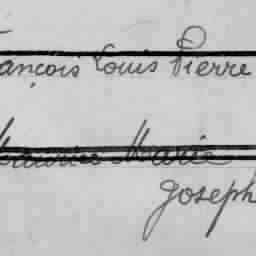 François Louis Pierre
Maurice Marie
Joseph